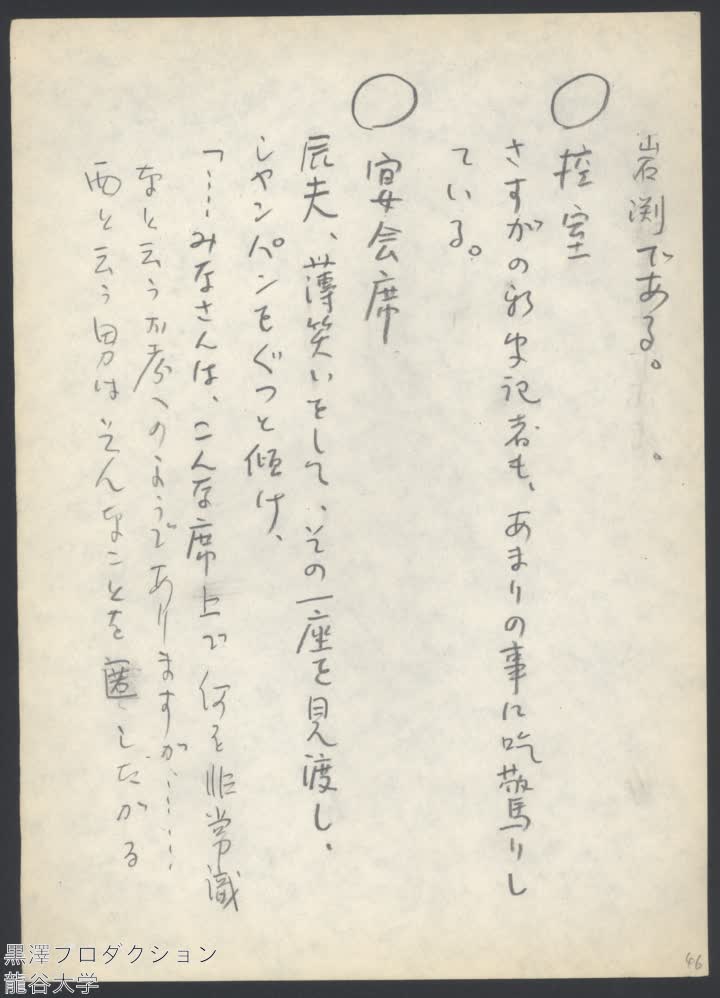 岩渕である。
○ 控室
さすがの新聞記者も、あまりの事に吃驚りし
ている。
○ 宴会席
辰夫、薄笑いをして、その一座を見渡し、
シャンペンをぐっと傾け、
「……みなさんは、こんな席上で何を非常識
なと云うお考へのようでありますが……
西と云う男はそんなことを匿したがる
46
黒澤プロダクション
龍谷大学